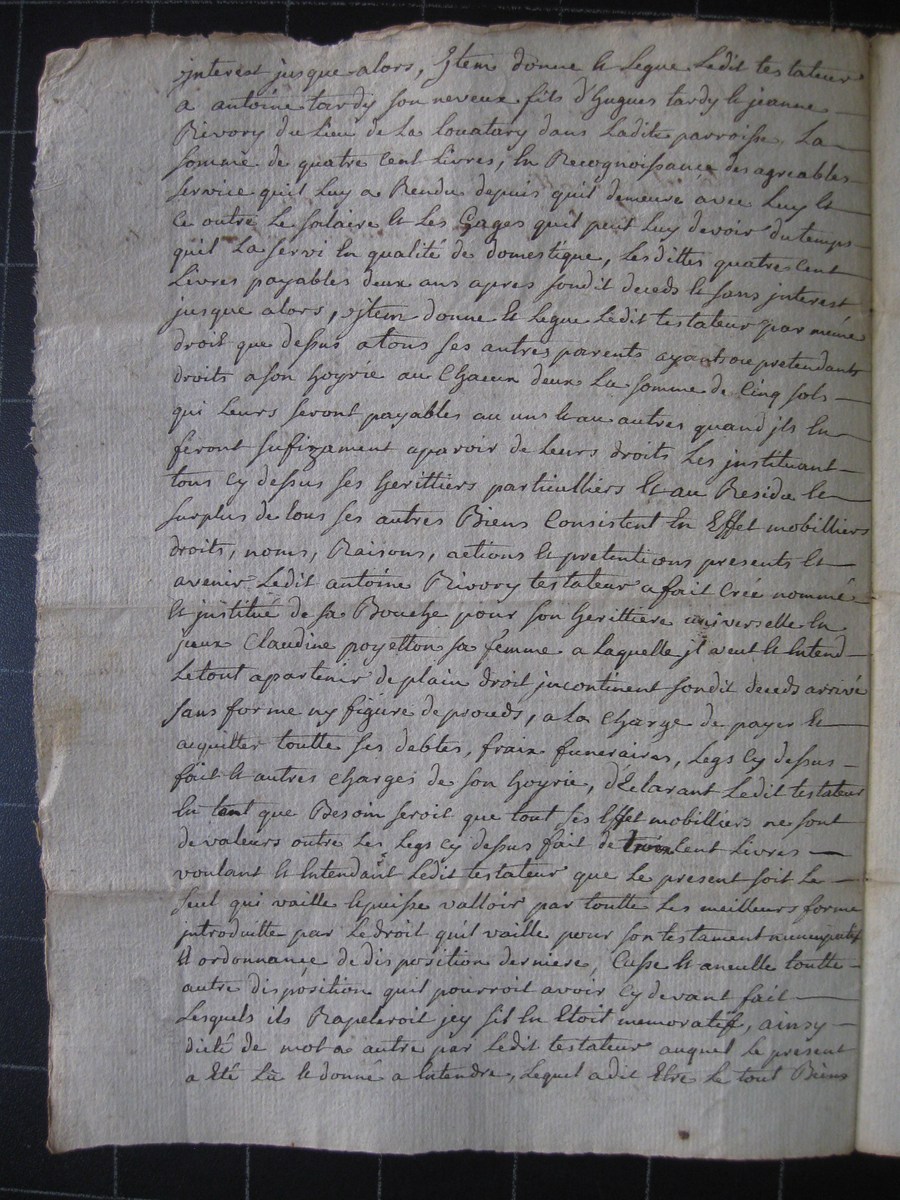 jnterest jusque alors, Jtem donne et legue Ledit testateur
a antoine tardy son neveux fils d'hugues tardy et jeanne
Rivory du Lieu de La louatary dans Ladite parroisse, La
somme de quatre cent Livres, en Recognoissance des agreables
service quil Luy a Rendu depuis quil demeure avec Luy et
ce outre Le salaire et Les Gages quil peut Luy devoir du temps
quil La servi en qualité de domestique, Lesdittes quatre cent
Livres payables deux ans apres sondit deceds et sans interest
jusque alors, jtem donne et Legue Ledit testateur par meme
droit que dessus a tous ses autres parents ayants ou pretendants
droits a son hoyrie au Chacun deux La somme de Cinq sols
qui Leurs seront payables au uns et au autres quand jls en
feront sufizament aparoir de Leurs droits Les jnstituant
tous cy dessus ses heritiers particulliers et au Residu et
surplus de tous ses autres Biens Consistent en Effet mobilliers
droits, noms, Raisons, actions et pretentions presents et
avenir Ledit antoine Rivory testateur a fait Créé nommé
et jnstitué de sa Bouche pour son herittiere universelle en
yceux Claudine poyetton sa femme a Laquelle jl veut et Entend
Letout apartenir de plain droit jncontinent sondit deceds arrivé
sans forme ny figure de proceds, a la Charge de payer et
acquitter toutte ses debtes, fraix funeraires, Legs cy dessus
fait et autres charges de son hoyrie, déclarant Ledit testateur
En tant que Besoin seroit que tout ses Effet mobilliers ne sont
de valeurs outre Les Legs cy dessus fait de trois Cent Livres
voulant et Entendant Ledit testateur que Le present soit Le
seul qui vaille et puisse valloir par toutte Les meilleurs forme
jntroduitte par Le droit quil vaille pour son testament nuncupatif
et ordonnance de disposition derniere, Casse et anculle toutte
autre disposition quil pourroit avoir cy devant fait
Lesquels ils Rapeleroit jcy sil En Etoit memoratif, ainsy
dicté de mot a autre par Ledit testateur auquel Le present
a Eté Lû et donné a Entendre, Lequel a dit Etre Le tout Biens